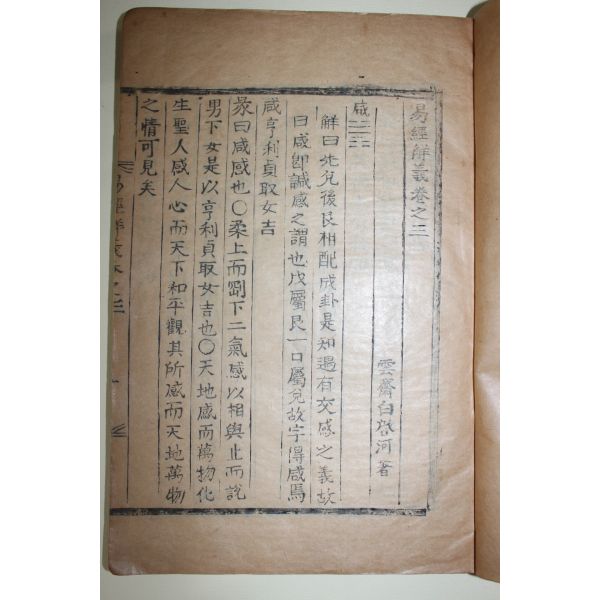 易經觧義卷之二
雲齋白河著
咸䷞
觧曰先兌後艮相配成卦是知遇有交感之義故
曰咸卽諴感之謂也戊屬艮一口屬兌故字得咸焉
咸亨利貞取女吉
彖曰咸感也○柔上而剛下二氣感以相與止而說
男下女是以亨利貞取女吉也○天地感而萬物化
生聖人感人心而天下和平觀其所感而天地萬物
之情可見矣
易經觧義卷之二 一